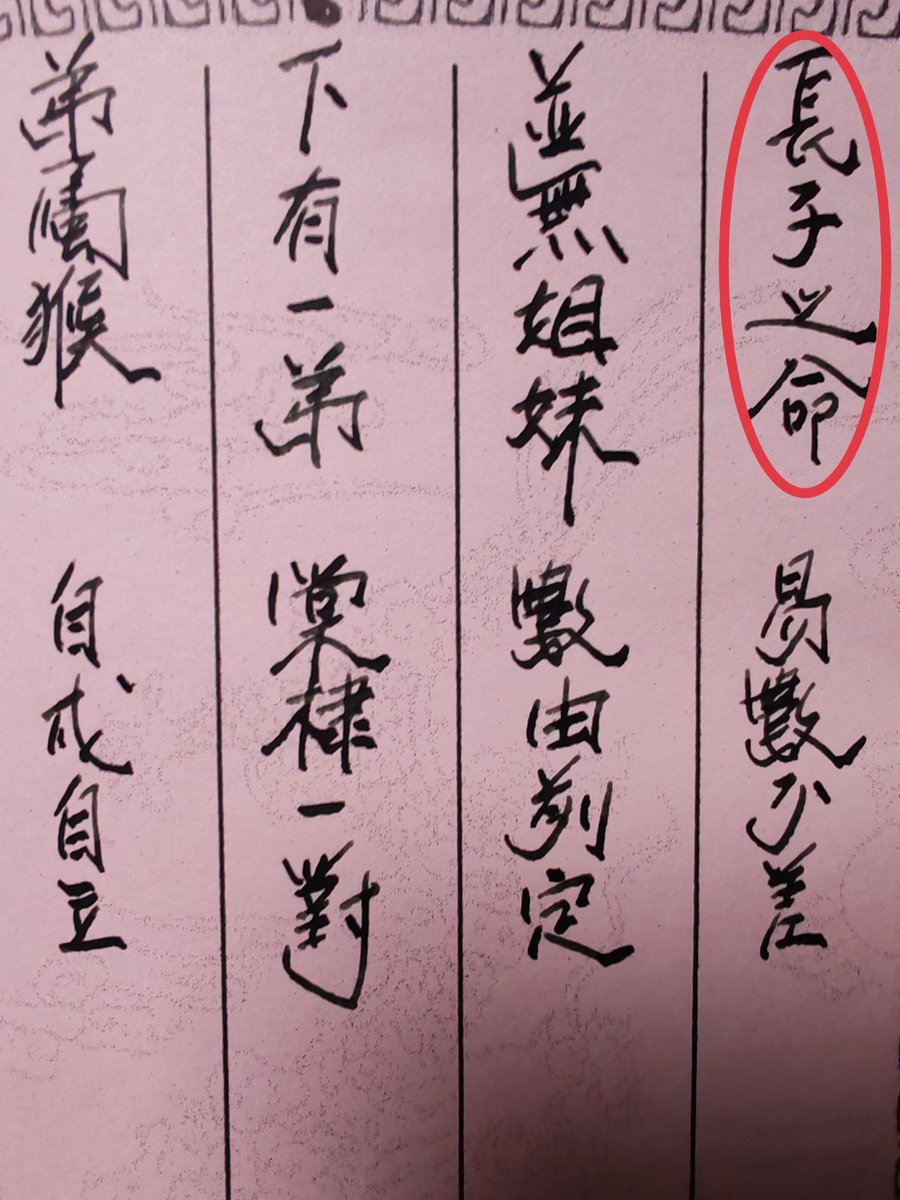 長子之命 易數不差
並無姐妹 數由前定
下有一弟 棠棣一對
弟屬猴 自成自立